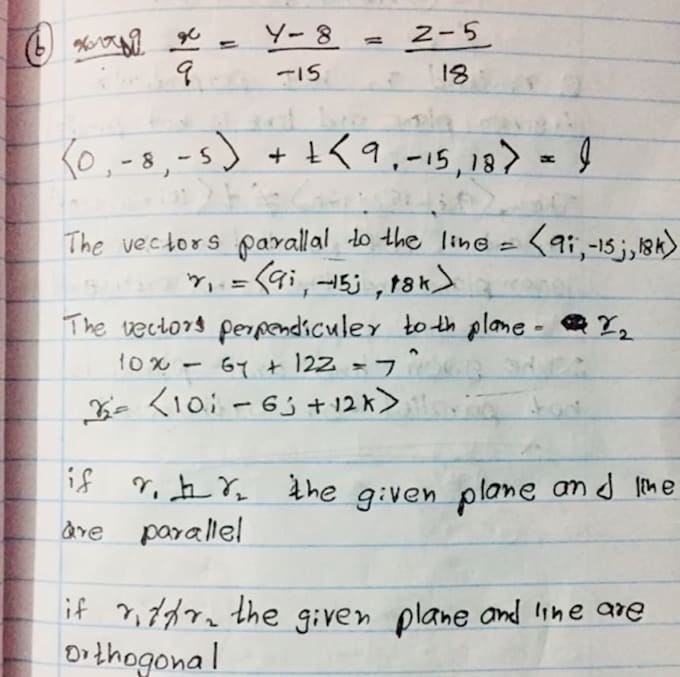 (b) x/9 = Y-8/-15 = Z-5/18
<0, -8, -5> + t<9, -15, 18> = l
The vectors parallal to the line = <9i, -15j, 18k>
r₁ = <9i, -15j, 18k>
The vectors perpendiculer to th plane - r₂
10x - 6y + 12z = 7
r₂ = <10i - 6j + 12k>
if r₁ ⊥ r₂ the given plane and line
are parallel
if r₁ // r₂ the given plane and line are
orthogonal